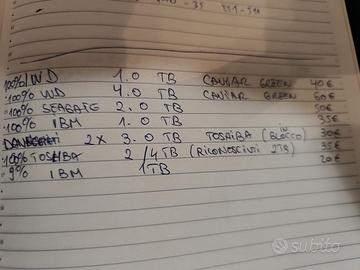 35 221-514
100% WD 1.0 TB CAVIAR GREEN 40€
100% WD 4.0 TB CAVIAR GREEN 60€
100% SEAGATE 2.0 TB 50€
100% IBM 1.0 TB 35€
2x 3.0 TB TOSHIBA (IN BLOCCO) 30€
100% TOSHIBA 2/4TB (RICONOSCIUTI 2TB) 35€
9% IBM 1TB 20€
subito